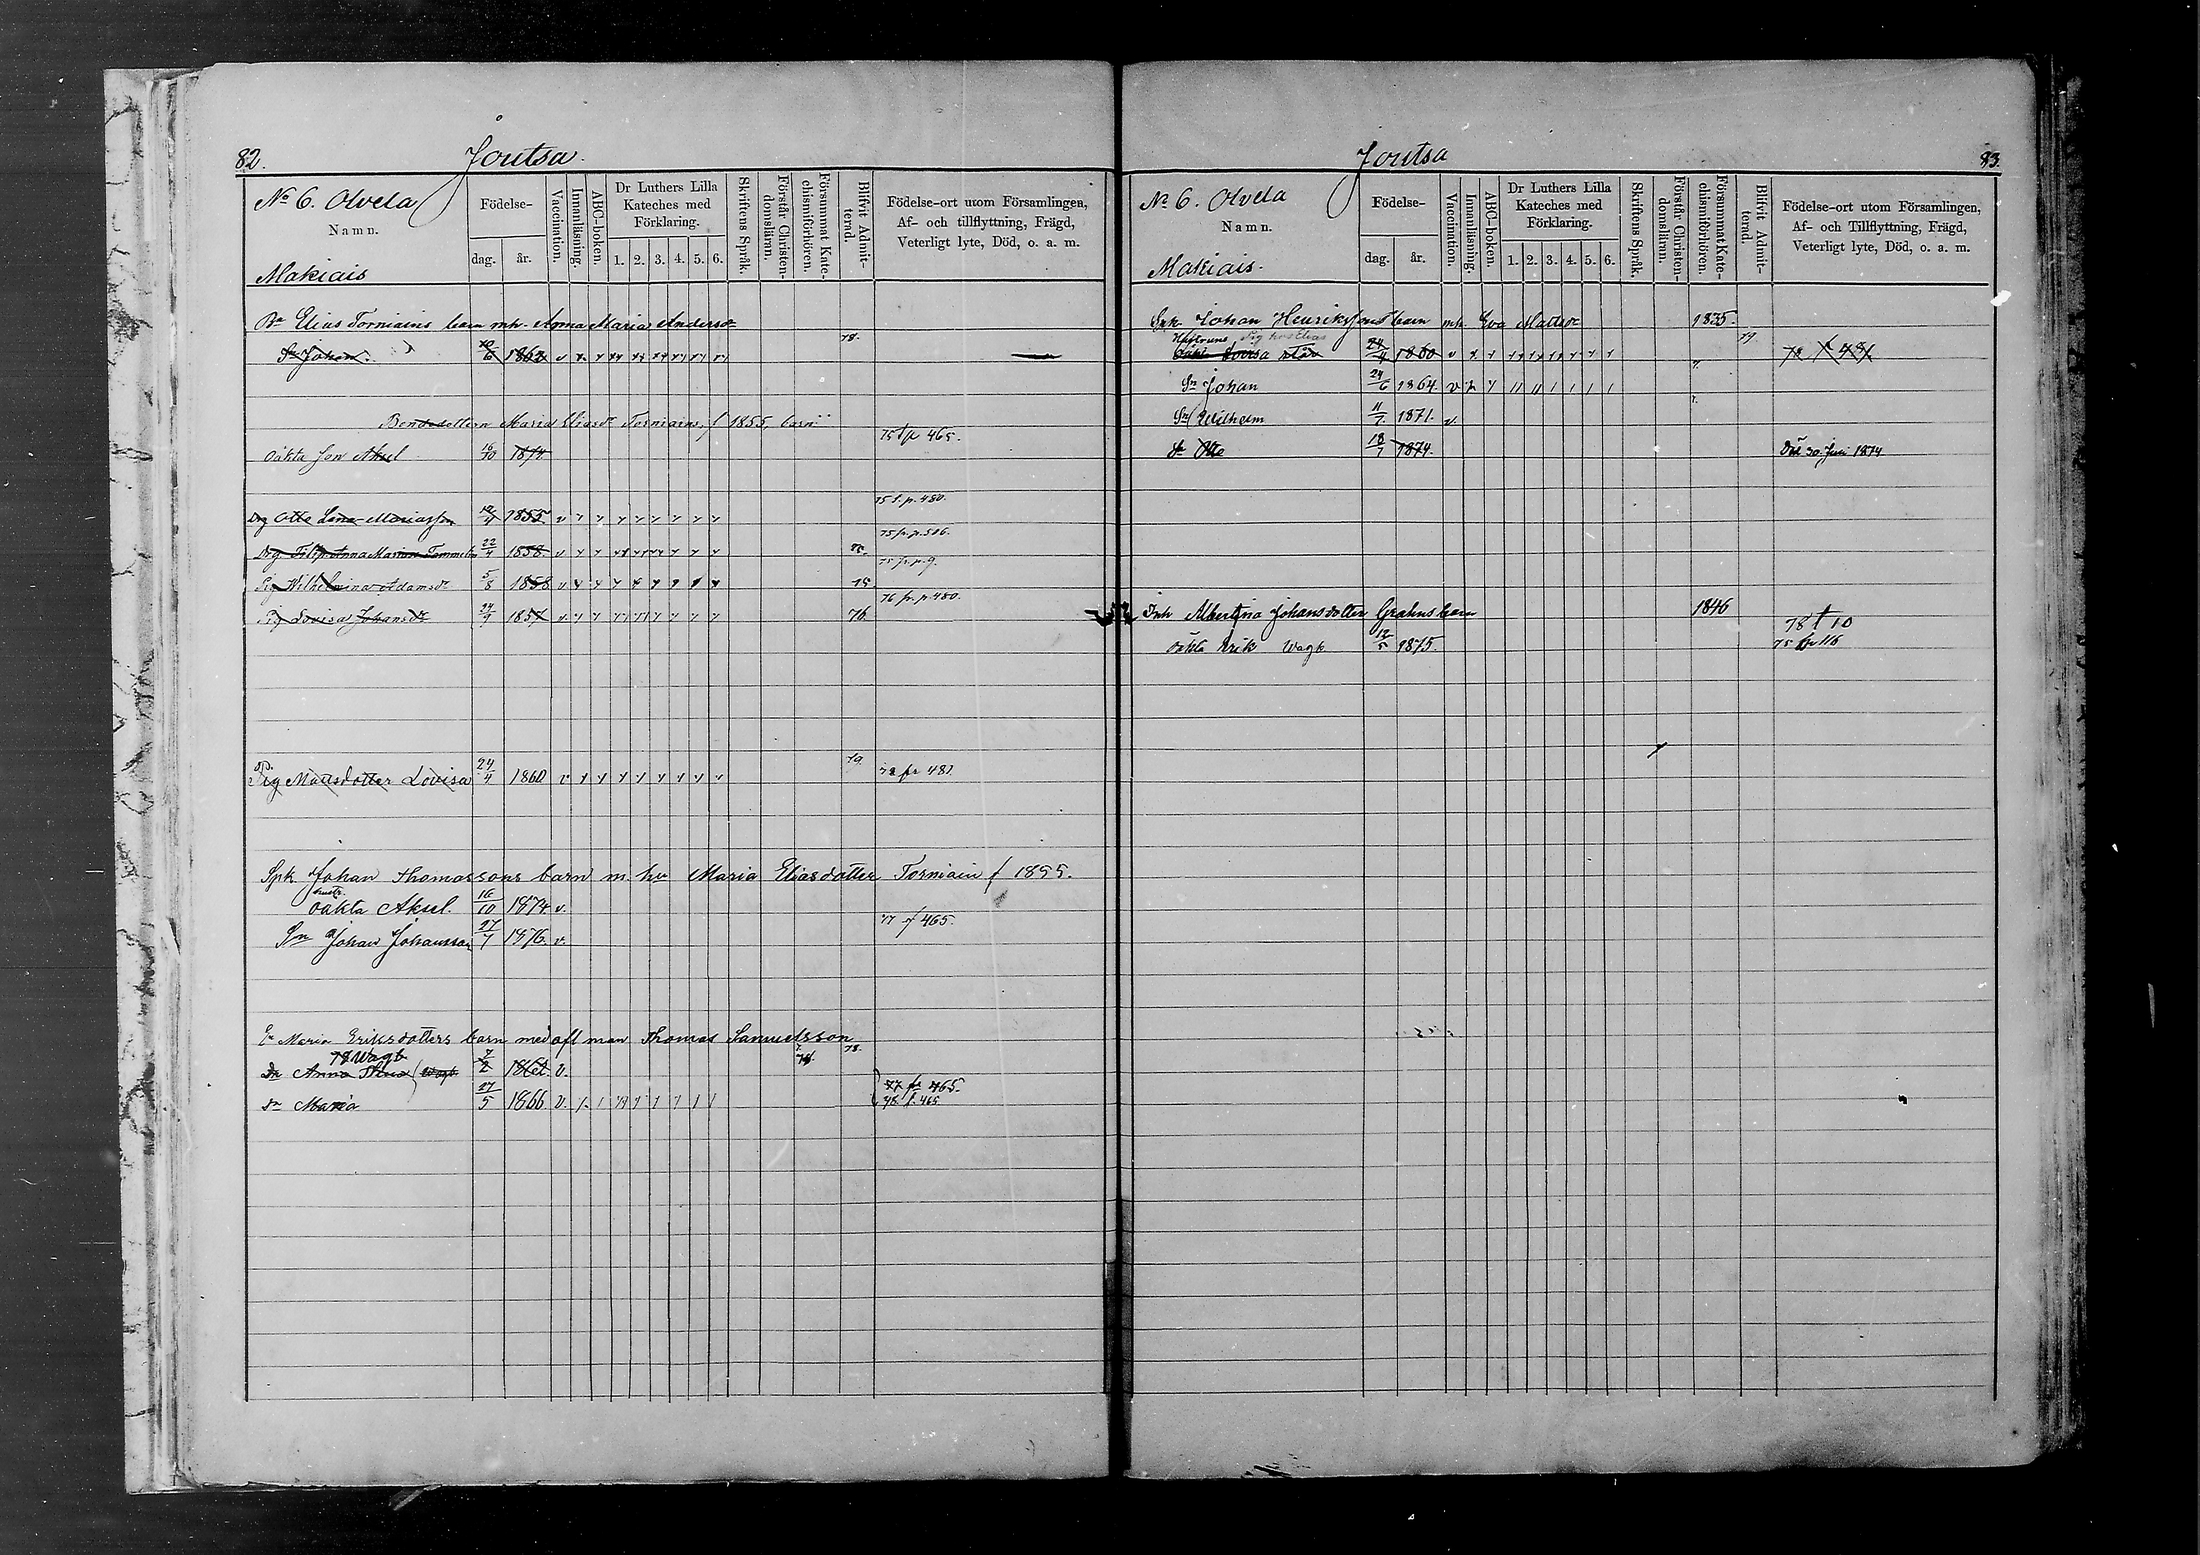 82. Joutsa.
No 6. Olvela
Namn.
Makiais
Födelse-
dag. år.
Vaccination.
Innanläsning.
ABC-boken.
Dr Luthers Lilla
Kateches med
Förklaring.
1. 2. 3. 4. 5. 6.
Skriftens Språk.
Förstår Christen-
domsläran.
Försummat Kate-
chismiförhören.
Blifvit Admit-
terad.
Födelse-ort utom Församlingen,
Af- och tillflyttning, Frägd,
Veterligt lyte, Död, o. a. m.
Elias Torniains barn mh. Anna Maria Andersdr
Sn Johan. 10/6 1862 v 78.
Maria Eliasdr Torniains, f 1855, barn
75 465.
Oäkta son Aksel 16/10 1874
75 f. p. 480.
Drg Otto Lena-Mariasson 1855 v
75 fr. p. 506.
Drg Filip Anna Marias 22/4 1858 v 75.
75 fr. p. 9.
Pig Wilhelmina Adamsdr 5/8 1858 v 75
76 fr. p 480.
Pig Lovisa Johansdr 24/9 1857 v 76.
Pig Mattsdotter Lovisa 24/4 1860 v 79. 78 fr 481
Spk Johan Thomassons barn m. hu Maria Eliasdotter Torniain f 1855.
hustr.
oäkta Aksel. 16/10 1874 v.
77 f 465.
Sn Johan Johansson 27/7 1876. v.
Maria Eriksdotters barn med aft man Thomas Samuelsson
78 Wagb 78.
Dr Anna Stina Wagb 7/2 1861. v.
77 fr 465.
dr Maria 27/5 1866 v. 78. f. 465
Joutsa 83.
No 6. Olvela
Namn.
Makiais.
Födelse-
dag. år.
Vaccination.
Innanläsning.
ABC-boken.
Dr Luthers Lilla
Kateches med
Förklaring.
1. 2. 3. 4. 5. 6.
Skriftens Språk.
Förstår Christen-
domsläran.
Försummat Kate-
chismiförhören.
Blifvit Admit-
terad.
Födelse-ort utom Församlingen,
Af- och Tillflyttning, Frägd,
Veterligt lyte, Död, o. a. m.
Spk. Johan Henrikssons barn mh. Eva Mattsdr 1835.
Hustruns Pig hos Elias
Oäkt Lovisa 24/4 1860 v 79. 78 f 481
Sn Johan 24/6 1864. v
Sn Wilhelm 11/7 1871. v.
dr Otto 18/7 1874. Död 30 Juni 1874
Inh Albertina Johansdotter Grahns barn 1846
78 t 10
oäkta Erik Wagb 12/5 1875. 75 fr 116